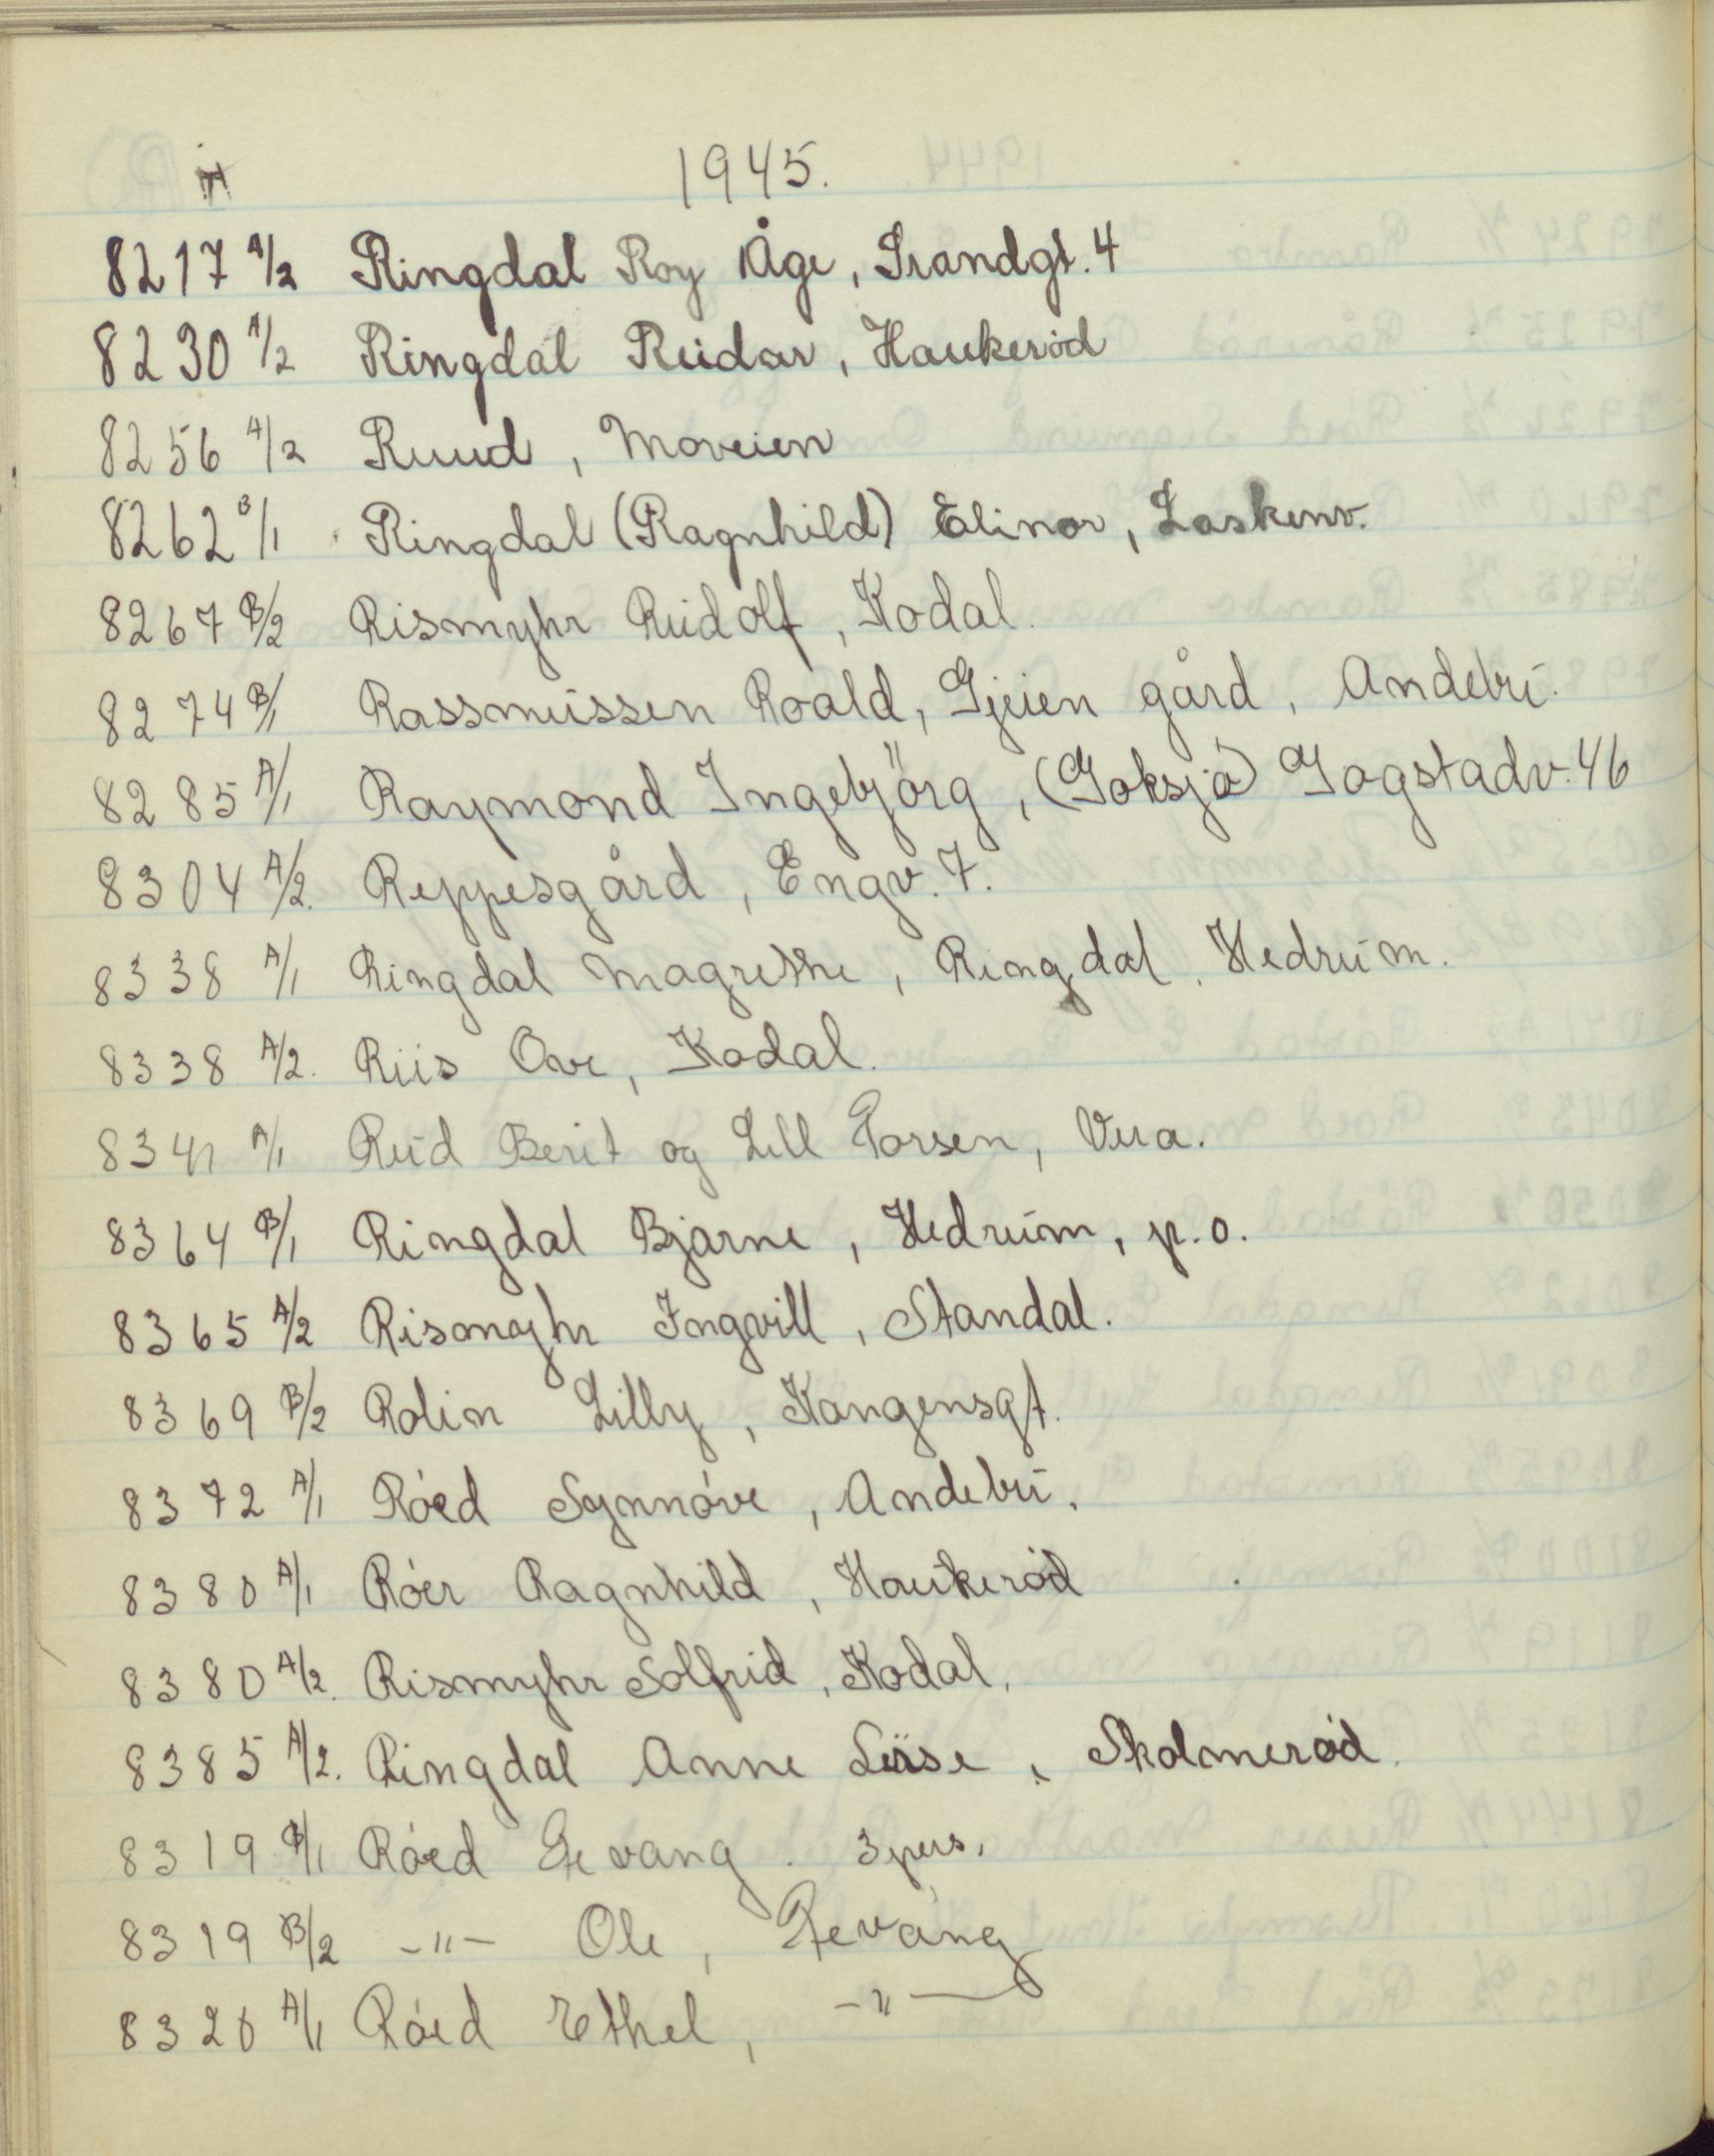 1945.
8217 A/2 Ringdal Roy Åge, Strandgt. 4
8230 A/2 Ringdal Reidar, Haukerød
8256 A/2 Ruud, Moveien
8262 B/1 Ringdal (Ragnhild) Elinor, Laskenv.
8267 B/2 Rismyhr Rudolf, Kodal.
8274 B/1 Rassmussen Roald, Gjeien gård, Andebu.
8285 A/1 Raymond Ingebjörg, (Goksjø) Gogstadv. 46
8304 A/2. Reppesgård, Engv. 7.
8338 A/1 Ringdal Magrethe, Ringdal. Hedrum.
8338 A/2. Riis Ove, Kodal.
A/1 Rud Berit og Lill Torsen, Vera.
8364 B/1 Ringdal Bjarne, Hedrum, p.o.
8365 A/2 Rismyhr Ingvill, Standal.
8369 B/2 Rolin Lilly, Kongensgt.
8372 A/1 Róed Synnóve, Andebu.
8380 A/1 Róer Ragnhild, Haukeród
8380 A/2. Rismyhr Solfrid, Kodal.
8385 A/2. Ringdal Anne Lise, Skolmeród.
8319 B/1 Róed Gevang. 3 pers.
8319 B/2 -"- Ole, Gevang
8320 A/1 Róed Ethel, -"-